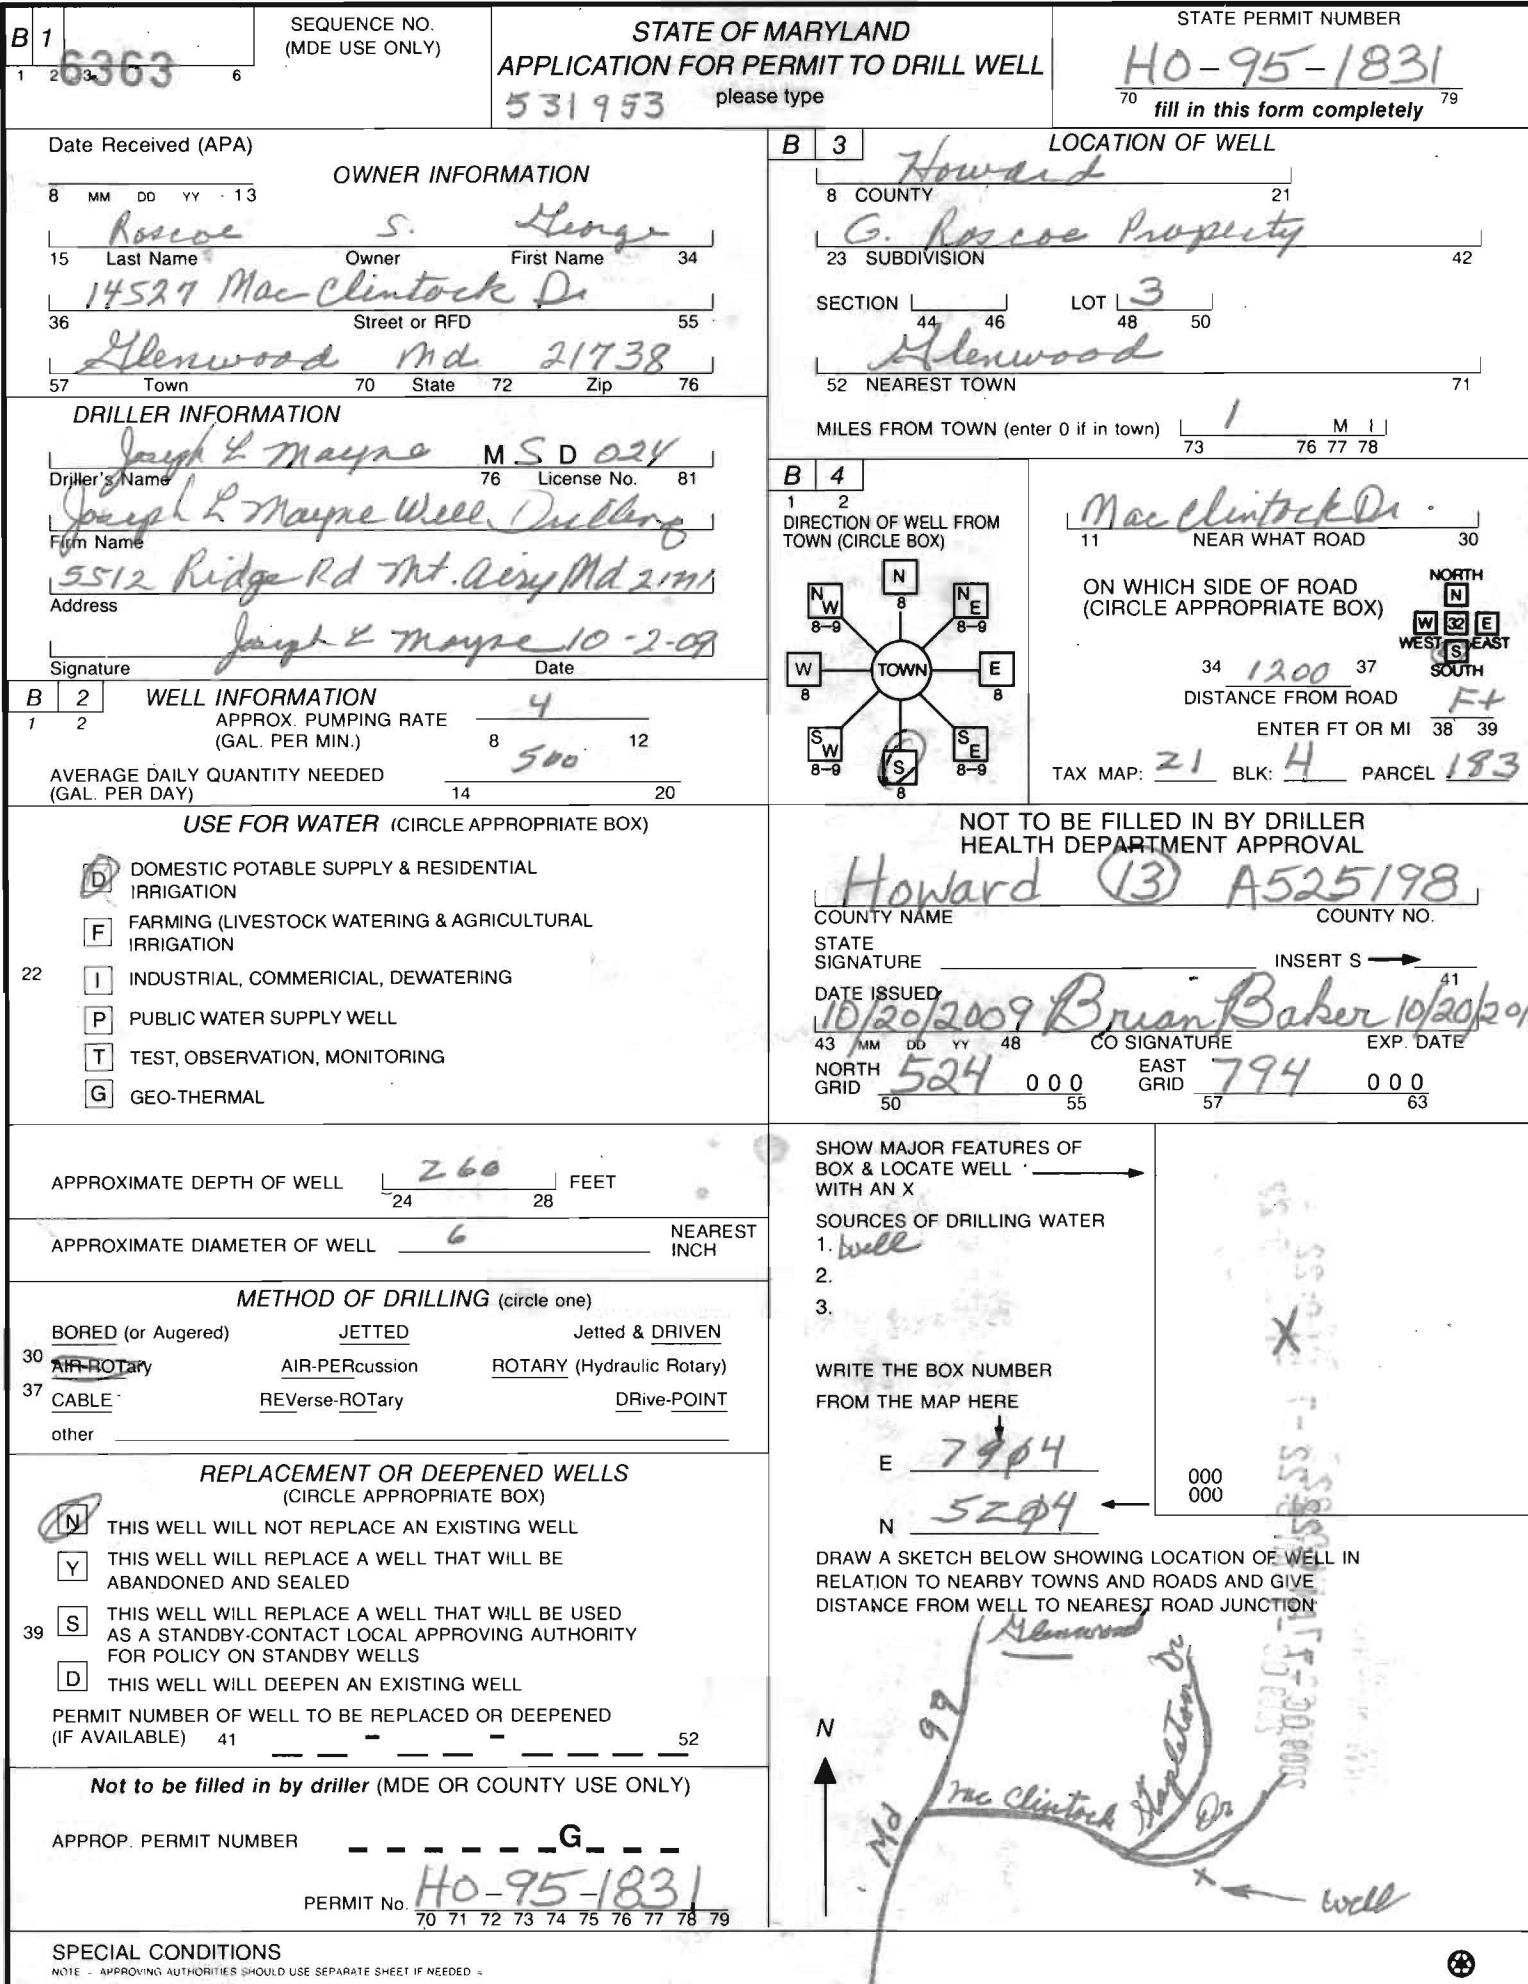 B 1
6363
1 2 3 6
SEQUENCE NO.
(MDE USE ONLY)
STATE OF MARYLAND
APPLICATION FOR PERMIT TO DRILL WELL
531953 please type
STATE PERMIT NUMBER
HO-95-1831
70 79
fill in this form completely
Date Received (APA)
8 MM DD YY 13
OWNER INFORMATION
Roscoe S. George
15 Last Name Owner First Name 34
14527 MacClintock Dr
36 Street or RFD 55
Glenwood Md 21738
57 Town 70 State 72 Zip 76
DRILLER INFORMATION
Joseph L Mayne M S D 024
Driller's Name 76 License No. 81
Joseph L Mayne Well Drilling
Firm Name
5512 Ridge Rd Mt. Airy Md 21771
Address
Joseph L Mayne 10-2-09
Signature Date
B 2 WELL INFORMATION
1 2
APPROX. PUMPING RATE 4
(GAL. PER MIN.) 8 12
AVERAGE DAILY QUANTITY NEEDED 500
(GAL. PER DAY) 14 20
USE FOR WATER (CIRCLE APPROPRIATE BOX)
D DOMESTIC POTABLE SUPPLY & RESIDENTIAL
IRRIGATION
F FARMING (LIVESTOCK WATERING & AGRICULTURAL
IRRIGATION
22 I INDUSTRIAL, COMMERICIAL, DEWATERING
P PUBLIC WATER SUPPLY WELL
T TEST, OBSERVATION, MONITORING
G GEO-THERMAL
APPROXIMATE DEPTH OF WELL 260 FEET
24 28
APPROXIMATE DIAMETER OF WELL 6 NEAREST
INCH
METHOD OF DRILLING (circle one)
BORED (or Augered) JETTED Jetted & DRIVEN
30 AIR-ROTary AIR-PERcussion ROTARY (Hydraulic Rotary)
37 CABLE REVerse-ROTary DRive-POINT
other
REPLACEMENT OR DEEPENED WELLS
(CIRCLE APPROPRIATE BOX)
N THIS WELL WILL NOT REPLACE AN EXISTING WELL
Y THIS WELL WILL REPLACE A WELL THAT WILL BE
ABANDONED AND SEALED
39 S THIS WELL WILL REPLACE A WELL THAT WILL BE USED
AS A STANDBY-CONTACT LOCAL APPROVING AUTHORITY
FOR POLICY ON STANDBY WELLS
D THIS WELL WILL DEEPEN AN EXISTING WELL
PERMIT NUMBER OF WELL TO BE REPLACED OR DEEPENED
(IF AVAILABLE) 41 - - 52
Not to be filled in by driller (MDE OR COUNTY USE ONLY)
APPROP. PERMIT NUMBER G
PERMIT No. HO-95-1831
70 71 72 73 74 75 76 77 78 79
SPECIAL CONDITIONS
NOTE - APPROVING AUTHORITIES SHOULD USE SEPARATE SHEET IF NEEDED =
B 3 LOCATION OF WELL
Howard
8 COUNTY 21
G. Roscoe Property
23 SUBDIVISION 42
SECTION LOT 3
44 46 48 50
Glenwood
52 NEAREST TOWN 71
MILES FROM TOWN (enter 0 if in town) 1 M I
73 76 77 78
B 4
1 2
DIRECTION OF WELL FROM
TOWN (CIRCLE BOX)
N
8
NW
8-9
NE
8-9
W
8
TOWN
E
8
SW
8-9
S
8
SE
8-9
MacClintock Dr.
11 NEAR WHAT ROAD 30
ON WHICH SIDE OF ROAD
(CIRCLE APPROPRIATE BOX)
NORTH
N
W 32 E
WEST S EAST
SOUTH
34 1200 37
DISTANCE FROM ROAD
ENTER FT OR MI Ft
38 39
TAX MAP: 21 BLK: 4 PARCEL 183
NOT TO BE FILLED IN BY DRILLER
HEALTH DEPARTMENT APPROVAL
Howard 13 A525198
COUNTY NAME COUNTY NO.
STATE
SIGNATURE INSERT S
41
DATE ISSUED
10/20/2009 Brian Baker 10/20/201
43 MM DD YY 48 CO SIGNATURE EXP. DATE
NORTH GRID 524 000 EAST GRID 794 000
50 55 57 63
SHOW MAJOR FEATURES OF
BOX & LOCATE WELL
WITH AN X
SOURCES OF DRILLING WATER
1. well
2.
3.
X
WRITE THE BOX NUMBER
FROM THE MAP HERE
E 7904
N 5204
000
000
DRAW A SKETCH BELOW SHOWING LOCATION OF WELL IN
RELATION TO NEARBY TOWNS AND ROADS AND GIVE
DISTANCE FROM WELL TO NEAREST ROAD JUNCTION
Glenwood
N
Md 99
Mc Clintock Dr
Stapleton Dr
X
well